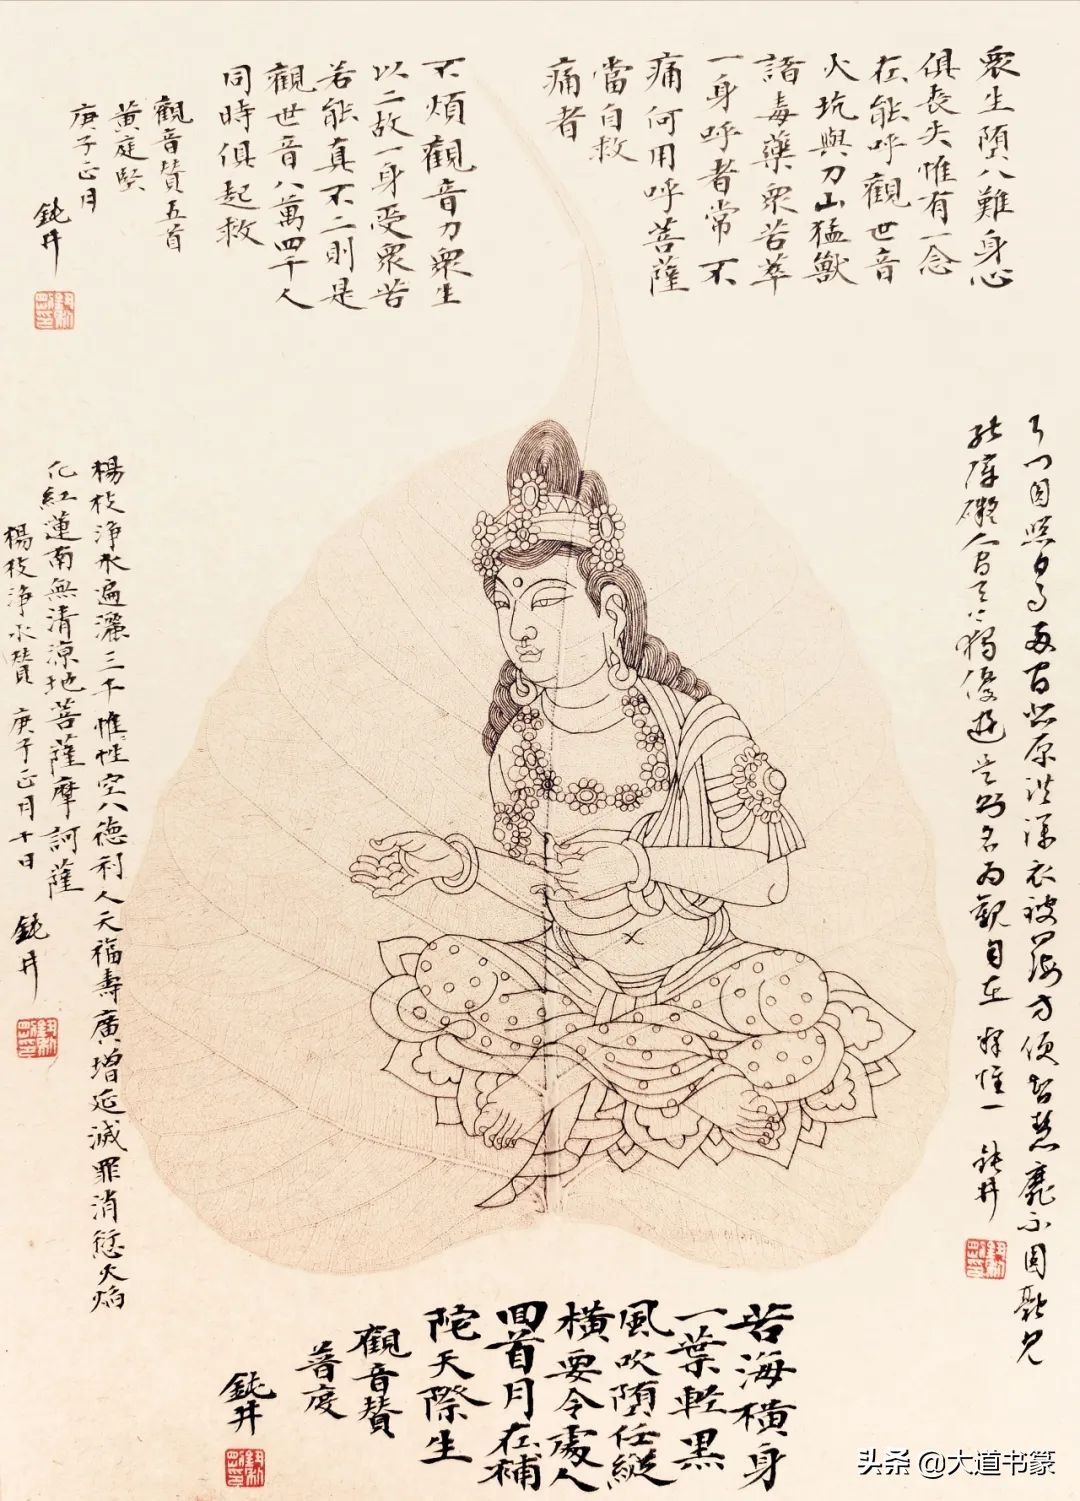 衆生堕八難身心
俱喪失惟有一念
在能呼觀世音
火坑與刀山猛獸
諸毒藥衆苦萃
一身呼者常不
痛何用呼菩薩
當自救
痛者
不煩觀音力衆生
以二故一身受衆苦
若能真不二則是
觀世音八萬四千人
同時俱起救
觀音賛五首
黄庭堅
庚子正月
鈍井
了
圓照
原洪深衣被
方便智慧
不圓
障礙
獨優遊
名為觀自在
釋惟一
鈍井
楊枝浄水遍灑三千惟性空八德利人天福壽廣增延滅罪消愆火焰
化紅蓮南無清涼地菩薩摩訶薩
楊枝浄水賛 庚子正月十日
鈍井
苦海横身
一葉輕黑
風吹堕任縱
橫要令處人
回首月在補
陀天際生
觀音賛
普度
鈍井
头条 @大道书篆